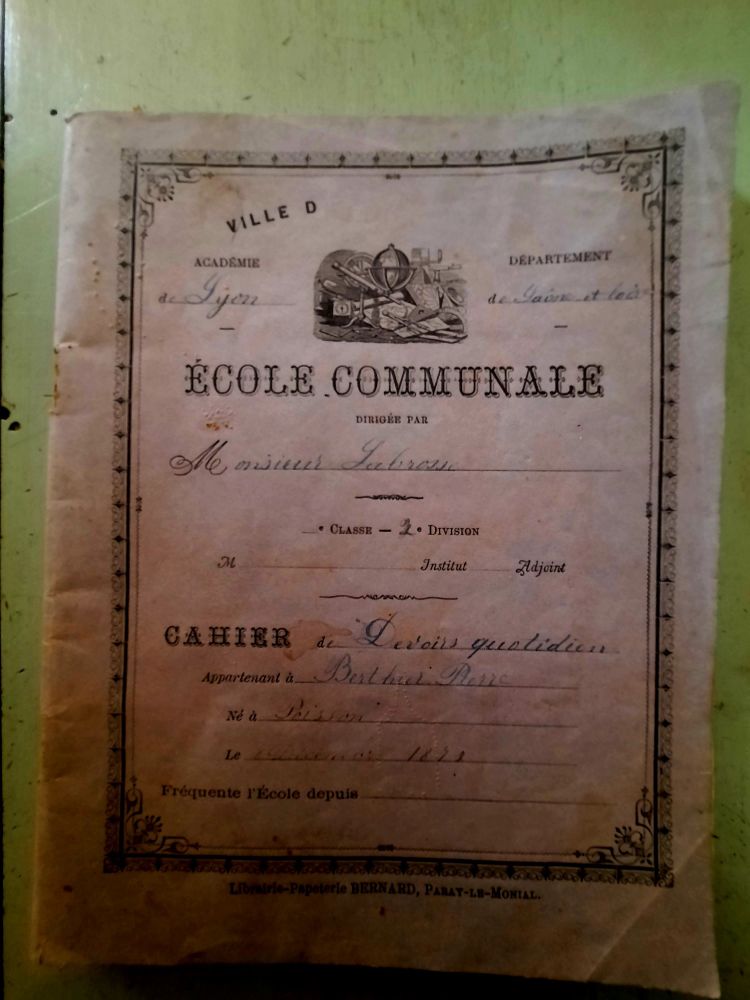 VILLE D
ACADÉMIE
de Lyon
DÉPARTEMENT
de Saône et loire
ÉCOLE COMMUNALE
DIRIGÉE PAR
Monsieur Labrosse
e CLASSE — 2e DIVISION
M Institut Adjoint
CAHIER de Devoirs quotidien
Appartenant à Pierre
Né à Poisson
Le
Fréquente l'École depuis
Librairie-Papeterie BERNARD, PARAY-LE-MONIAL.